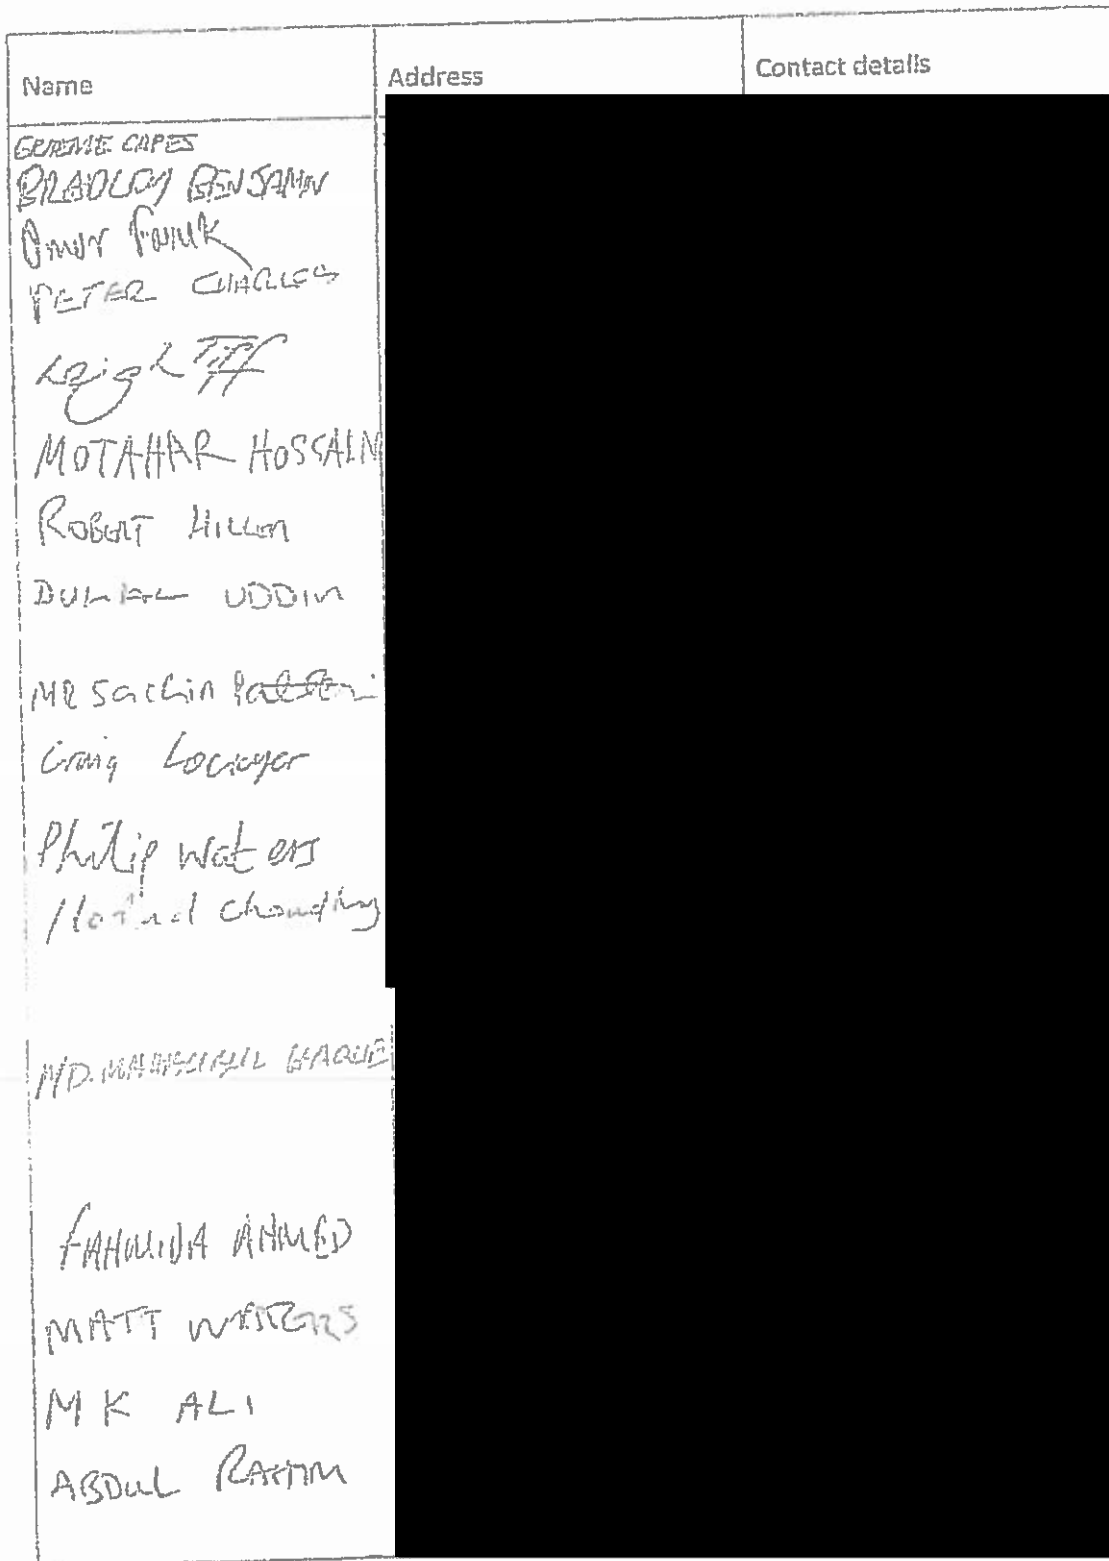 Name Address Contact details
GRAEME CAPES
BRADLEY BENJAMIN
PETER CHARLES
Leigh Tiff
MOTAHAR HOSSAIN
ROBERT HILLER
UDDIN
MR Sachin
Craig Lockyer
Philip Waters
Chowdhury
MD. HAQUE
FAHMIDA AHMED
MATT WATERS
M K ALI
ABDUL RAHIM